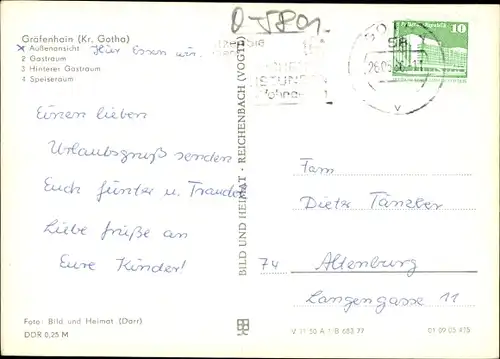 Gräfenhain (Kr. Gotha)
X Außenansicht Hier Essen wir.
2 Gastraum
3 Hinterer Gastraum
4 Speiseraum
Einen lieben
Urlaubsgruß senden
Euch Günter u. Traudel
Liebe Grüße an
Eure Kinder!
Foto: Bild und Heimat (Darr)
DDR 0,25 M
BILD UND HEIMAT · REICHENBACH (VOGTL)
0-5801
10
v
Fam
Dieter Tänzler
74 Altenburg
Langengasse 11
V 11 50 A 1 B 683 77
01 09 05 475